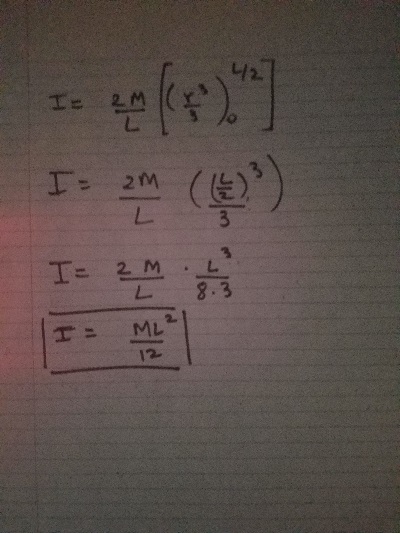 I = 2M/L [(r³/3)₀^L/2]
I = 2M/L ((L/2)³/3)
I = 2M/L · L³/8·3
I = ML²/12